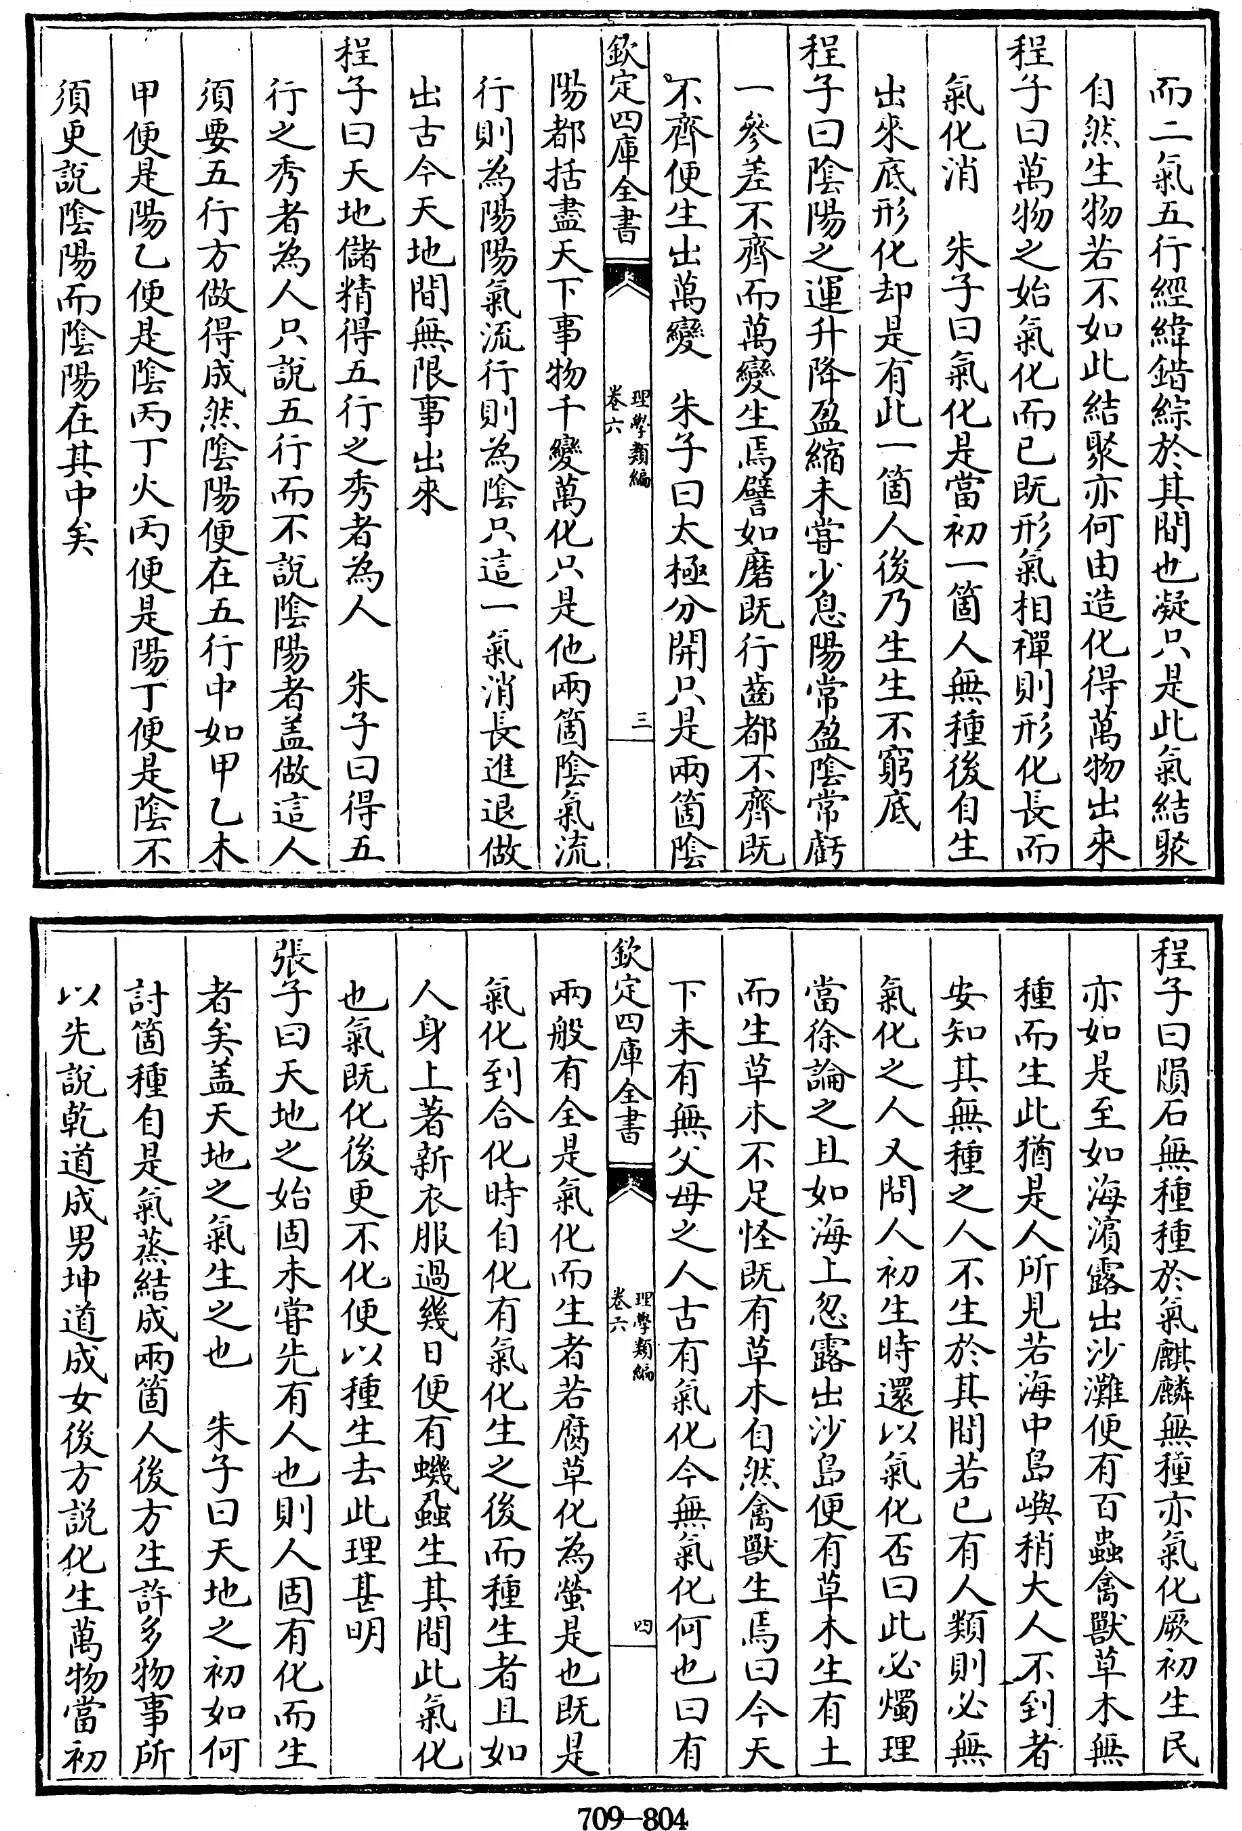 而二氣五行經緯錯綜於其間也凝只是此氣結聚
自然生物若不如此結聚亦何由造化得萬物出來
程子曰萬物之始氣化而已既形氣相禪則形化長而
氣化消　朱子曰氣化是當初一箇人無種後自生
出來底形化却是有此一箇人後乃生生不窮底
程子曰陰陽之運升降盈縮未嘗少息陽常盈陰常虧
一參差不齊而萬變生焉譬如磨既行齒都不齊既
不齊便生出萬變　朱子曰太極分開只是兩箇陰
欽定四庫全書
理學類編
卷六
三
陽都括盡天下事物千變萬化只是他兩箇陰氣流
行則為陽陽氣流行則為陰只這一氣消長進退做
出古今天地間無限事出來
程子曰天地儲精得五行之秀者為人　朱子曰得五
行之秀者為人只說五行而不說陰陽者盖做這人
須要五行方做得成然陰陽便在五行中如甲乙木
甲便是陽乙便是陰丙丁火丙便是陽丁便是陰不
須更說陰陽而陰陽在其中矣
程子曰隕石無種種於氣麒麟無種亦氣化厥初生民
亦如是至如海濱露出沙灘便有百蟲禽獸草木無
種而生此猶是人所見若海中島嶼稍大人不到者
安知其無種之人不生於其間若已有人類則必無
氣化之人又問人初生時還以氣化否曰此必燭理
當徐論之且如海上忽露出沙島便有草木生有土
而生草木不足怪既有草木自然禽獸生焉曰今天
下未有無父母之人古有氣化今無氣化何也曰有
欽定四庫全書
理學類編
卷六
四
兩般有全是氣化而生者若腐草化為螢是也既是
氣化到合化時自化有氣化生之後而種生者且如
人身上著新衣服過幾日便有蟣蝨生其間此氣化
也氣既化後更不化便以種生去此理甚明
張子曰天地之始固未嘗先有人也則人固有化而生
者矣盖天地之氣生之也　朱子曰天地之初如何
討箇種自是氣蒸結成兩箇人後方生許多物事所
以先說乾道成男坤道成女後方說化生萬物當初
709-804